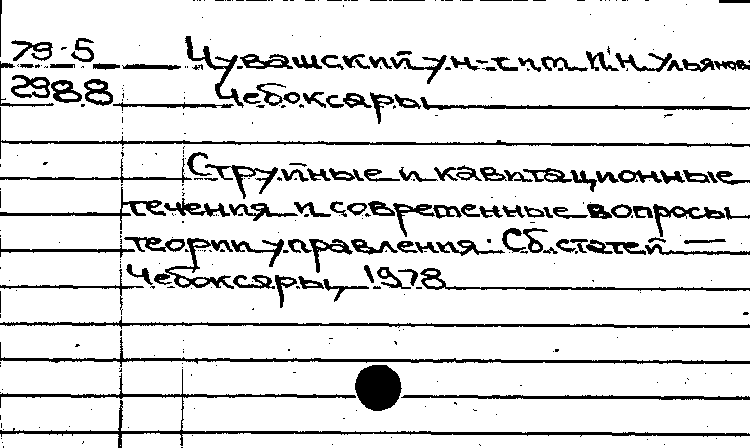 79-5 Чувашский ун-т им. И.Н. Ульянова
2988 Чебоксары
Струйные и кавитационные
течения и современные вопросы
теории управления. Сб. статей —
Чебоксары, 1978